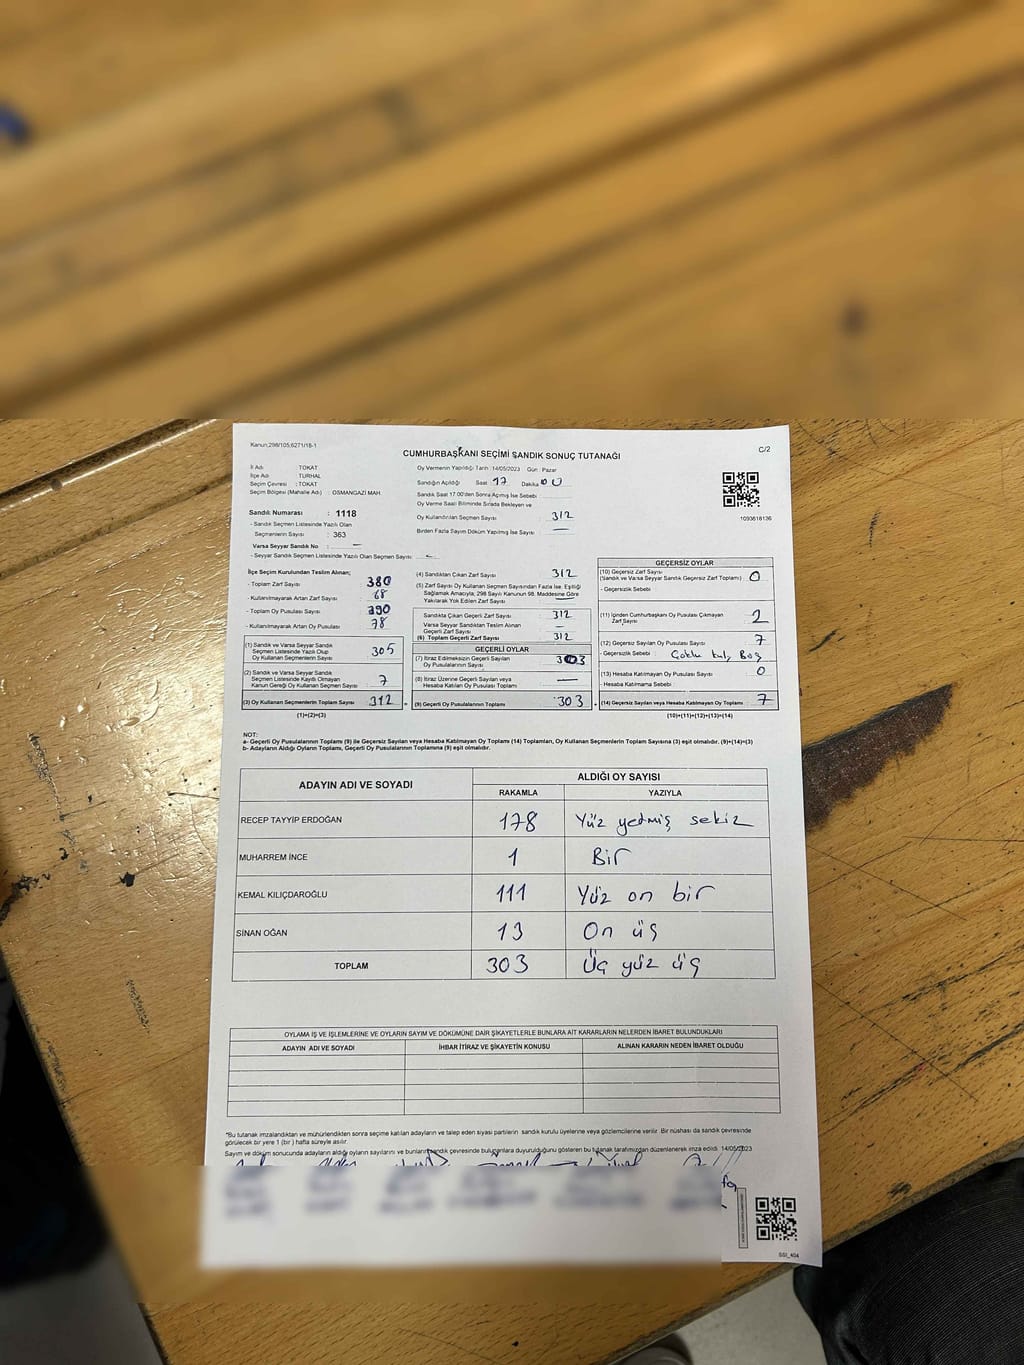 Kanun;298/105;6271/18-1
C/2
CUMHURBAŞKANI SEÇİMİ SANDIK SONUÇ TUTANAĞI
İl Adı : TOKAT
İlçe Adı : TURHAL
Seçim Çevresi : TOKAT
Seçim Bölgesi (Mahalle Adı) : OSMANGAZİ MAH.
Oy Vermenin Yapıldığı Tarih :14/05/2023 Gün : Pazar
Sandığın Açıldığı Saat 17 Dakika 00
Sandık Saat 17.00'den Sonra Açılmış İse Sebebi :
Oy Verme Saati Bitiminde Sırada Bekleyen ve
Oy Kullandırılan Seçmen Sayısı : 312
Birden Fazla Sayım Döküm Yapılmış İse Sayısı : —
1093618136
Sandık Numarası : 1118
- Sandık Seçmen Listesinde Yazılı Olan
Seçmenlerin Sayısı : 363
Varsa Seyyar Sandık No : —
- Seyyar Sandık Seçmen Listesinde Yazılı Olan Seçmen Sayısı : —
İlçe Seçim Kurulundan Teslim Alınan;
- Toplam Zarf Sayısı : 380
- Kullanılmayarak Artan Zarf Sayısı : 68
- Toplam Oy Pusulası Sayısı : 390
- Kullanılmayarak Artan Oy Pusulası : 78
(1) Sandık ve Varsa Seyyar Sandık
Seçmen Listesinde Yazılı Olup
Oy Kullanan Seçmenlerin Sayısı : 305
(2) Sandık ve Varsa Seyyar Sandık
Seçmen Listesinde Kayıtlı Olmayan
Kanun Gereği Oy Kullanan Seçmen Sayısı : 7
(3) Oy Kullanan Seçmenlerin Toplam Sayısı : 312
(1)+(2)=(3)
(4) Sandıktan Çıkan Zarf Sayısı : 312
(5) Zarf Sayısı Oy Kullanan Seçmen Sayısından Fazla İse, Eşitliği
Sağlamak Amacıyla; 298 Sayılı Kanunun 98. Maddesine Göre
Yakılarak Yok Edilen Zarf Sayısı : —
Sandıkta Çıkan Geçerli Zarf Sayısı : 312
Varsa Seyyar Sandıktan Teslim Alınan
Geçerli Zarf Sayısı : —
(6) Toplam Geçerli Zarf Sayısı : 312
GEÇERLİ OYLAR
(7) İtiraz Edilmeksizin Geçerli Sayılan
Oy Pusulalarının Sayısı : 303
(8) İtiraz Üzerine Geçerli Sayılan veya
Hesaba Katılan Oy Pusulası Toplamı : —
(9) Geçerli Oy Pusulalarının Toplamı : 303
GEÇERSİZ OYLAR
(10) Geçersiz Zarf Sayısı
(Sandık ve Varsa Seyyar Sandık Geçersiz Zarf Toplamı) : 0
- Geçersizlik Sebebi :
(11) İçinden Cumhurbaşkanı Oy Pusulası Çıkmayan
Zarf Sayısı : 2
(12) Geçersiz Sayılan Oy Pusulası Sayısı : 7
- Geçersizlik Sebebi : Boş
(13) Hesaba Katılmayan Oy Pusulası Sayısı : 0
- Hesaba Katılmama Sebebi :
(14) Geçersiz Sayılan veya Hesaba Katılmayan Oy Toplamı : 7
(10)+(11)+(12)+(13)=(14)
NOT:
a- Geçerli Oy Pusulalarının Toplamı (9) ile Geçersiz Sayılan veya Hesaba Katılmayan Oy Toplamı (14) Toplamları, Oy Kullanan Seçmenlerin Toplam Sayısına (3) eşit olmalıdır. (9)+(14)=(3)
b- Adayların Aldığı Oyların Toplamı, Geçerli Oy Pusulalarının Toplamına (9) eşit olmalıdır.
ADAYIN ADI VE SOYADI ALDIĞI OY SAYISI
RAKAMLA YAZIYLA
RECEP TAYYİP ERDOĞAN 178 Yüz yetmiş sekiz
MUHARREM İNCE 1 Bir
KEMAL KILIÇDAROĞLU 111 Yüz on bir
SİNAN OĞAN 13 On üç
TOPLAM 303 Üç yüz üç
OYLAMA İŞ VE İŞLEMLERİNE VE OYLARIN SAYIM VE DÖKÜMÜNE DAİR ŞİKAYETLERLE BUNLARA AİT KARARLARIN NELERDEN İBARET BULUNDUKLARI
ADAYIN ADI VE SOYADI İHBAR İTİRAZ VE ŞİKAYETİN KONUSU ALINAN KARARIN NEDEN İBARET OLDUĞU
"Bu tutanak imzalandıktan ve mühürlendikten sonra seçime katılan adayların ve talep eden siyasi partilerin sandık kurulu üyelerine veya gözlemcilerine verilir. Bir nüshası da sandık çevresinde
görülecek bir yere 1 (bir) hafta süreyle asılır.
Sayım ve döküm sonucunda adayların aldığı oyların sayılarını ve bunların sandık çevresinde bulunanlara duyurulduğunu gösteren bu tutanak tarafımızdan düzenlenerek imza edildi. 14/05/2023
SSI_404